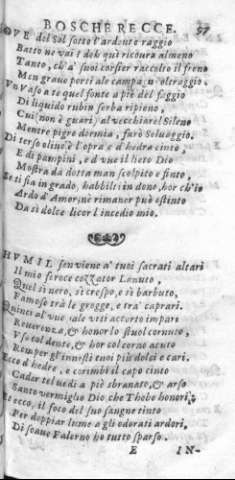 BOSCHERECCE. 57
OVE del Sol sotto l'ardente raggio
Batto ne vai? deh qui ricovra almeno
Tanto, ch'a' tuoi corsier raccolto il freno
Men grave porti a le campagne oltraggio.
Un Vaso a te quel fonte a piè del faggio
Di liquido rubin serba ripieno,
Cui (non è guari) al vecchiarel Sileno
Mentre pigre dormia, furò Seluaggio.
Di terso olivo è l'opra e d'hedra cinto,
E di pampini, ed v'ue il lieto Dio
Mostra da dotta man scolpito e finto,
Se ti fia in grado, habbilo in dono, hor ch'io
Ardo d'Amor, nè rimaner può estinto
Da sì dolce licor l'incedio mio.
HVMIL sen viene a' tuoi sacrati altari
Il mio feroce cozzator Lanuto,
Quel sì nero, sì crespo, e sì barbuto,
Famoso trà le gregge, e tra' caprari.
Quinci al vue ale viti accorto impari
Reuerenza, & honor lo stuol cornuto,
V'so col dente, & hor col corno acuto
Romper gl'innesti tuoi più dolci e cari.
Ecco d'hedre, e corimbi il capo cinto
Cader tel vedi a piè sbranato, & arso
Santo vermiglio Dio che Thebe honori,
Et ecco, il foco del suo sangue tinto
Per doppiar lume a gli odorati ardori,
Di soaue Falerno hò tutto sparso.
E IN-